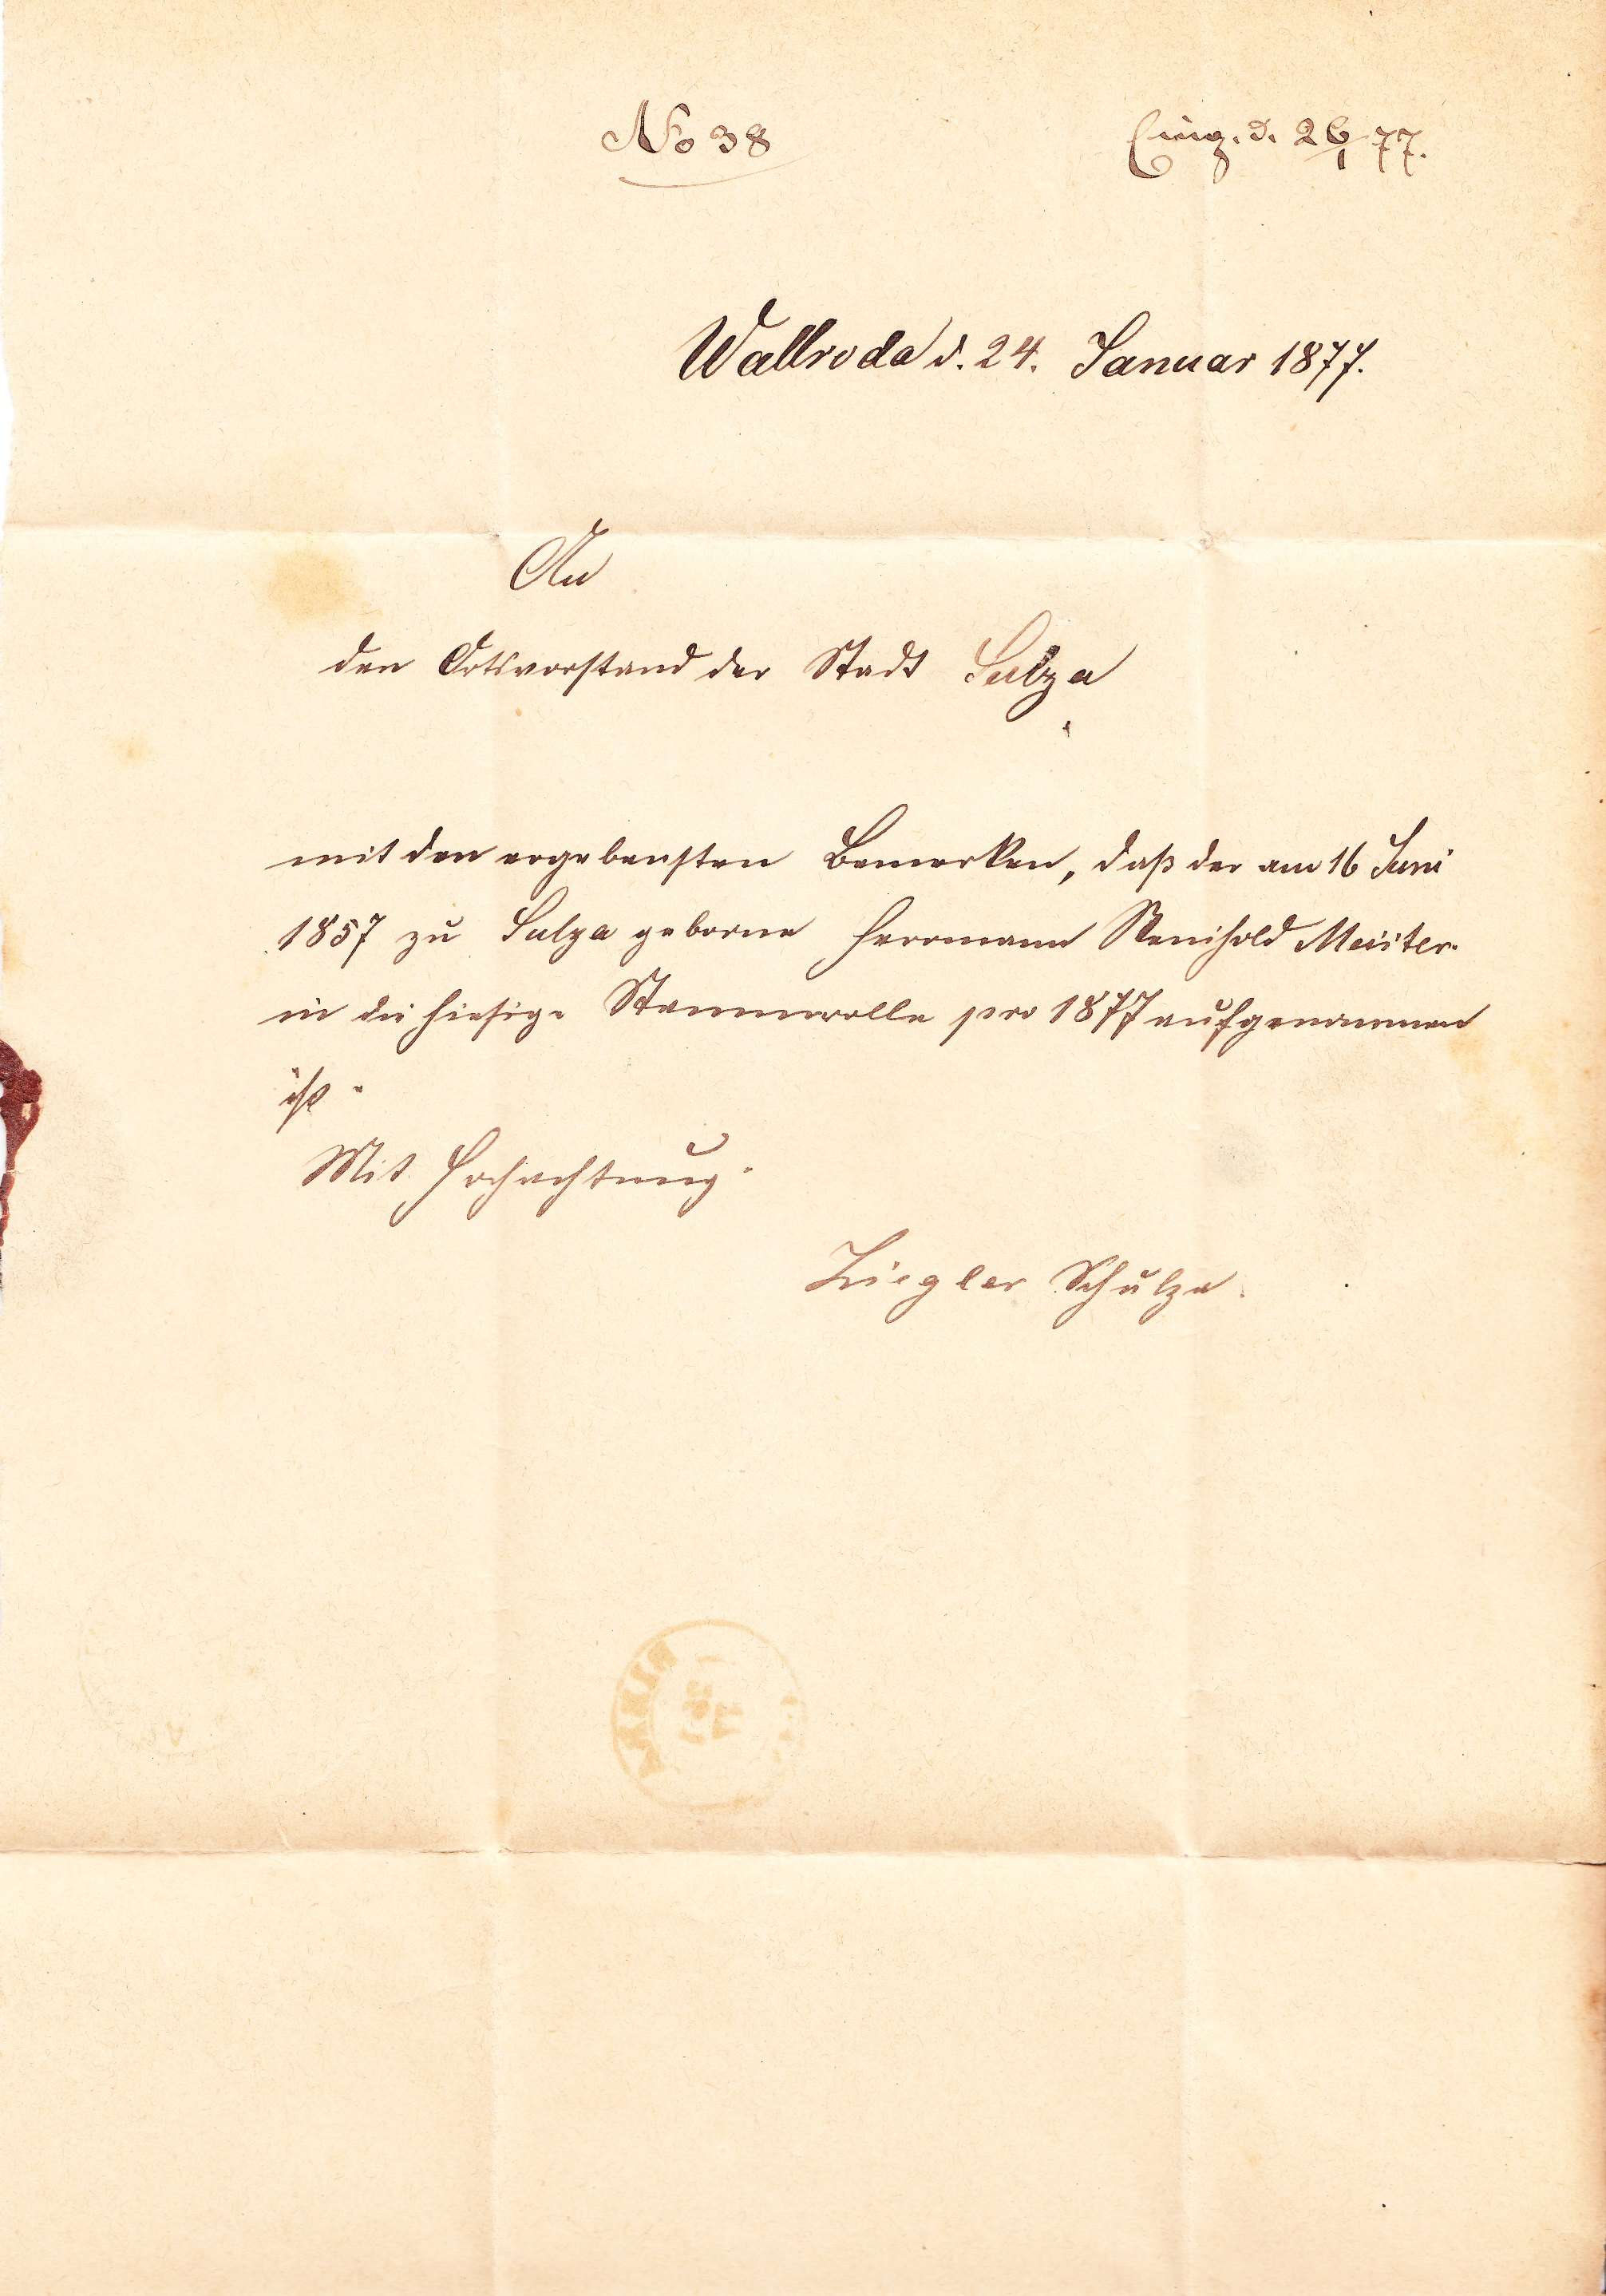 No 38
Eing. d. 26/1 77.
Wallroda d. 24. Januar 1877.
An
den Ortsvorstand der Stadt Sulza
mit den ergebensten Bemerken, daß der am 16 Juni
1857 zu Sulza geborne Herrmann Reinhold Meister
in die hiesige Stammrolle pro 1877 aufgenommen
ist.
Mit Hochachtung.
Ziegler Schulze.